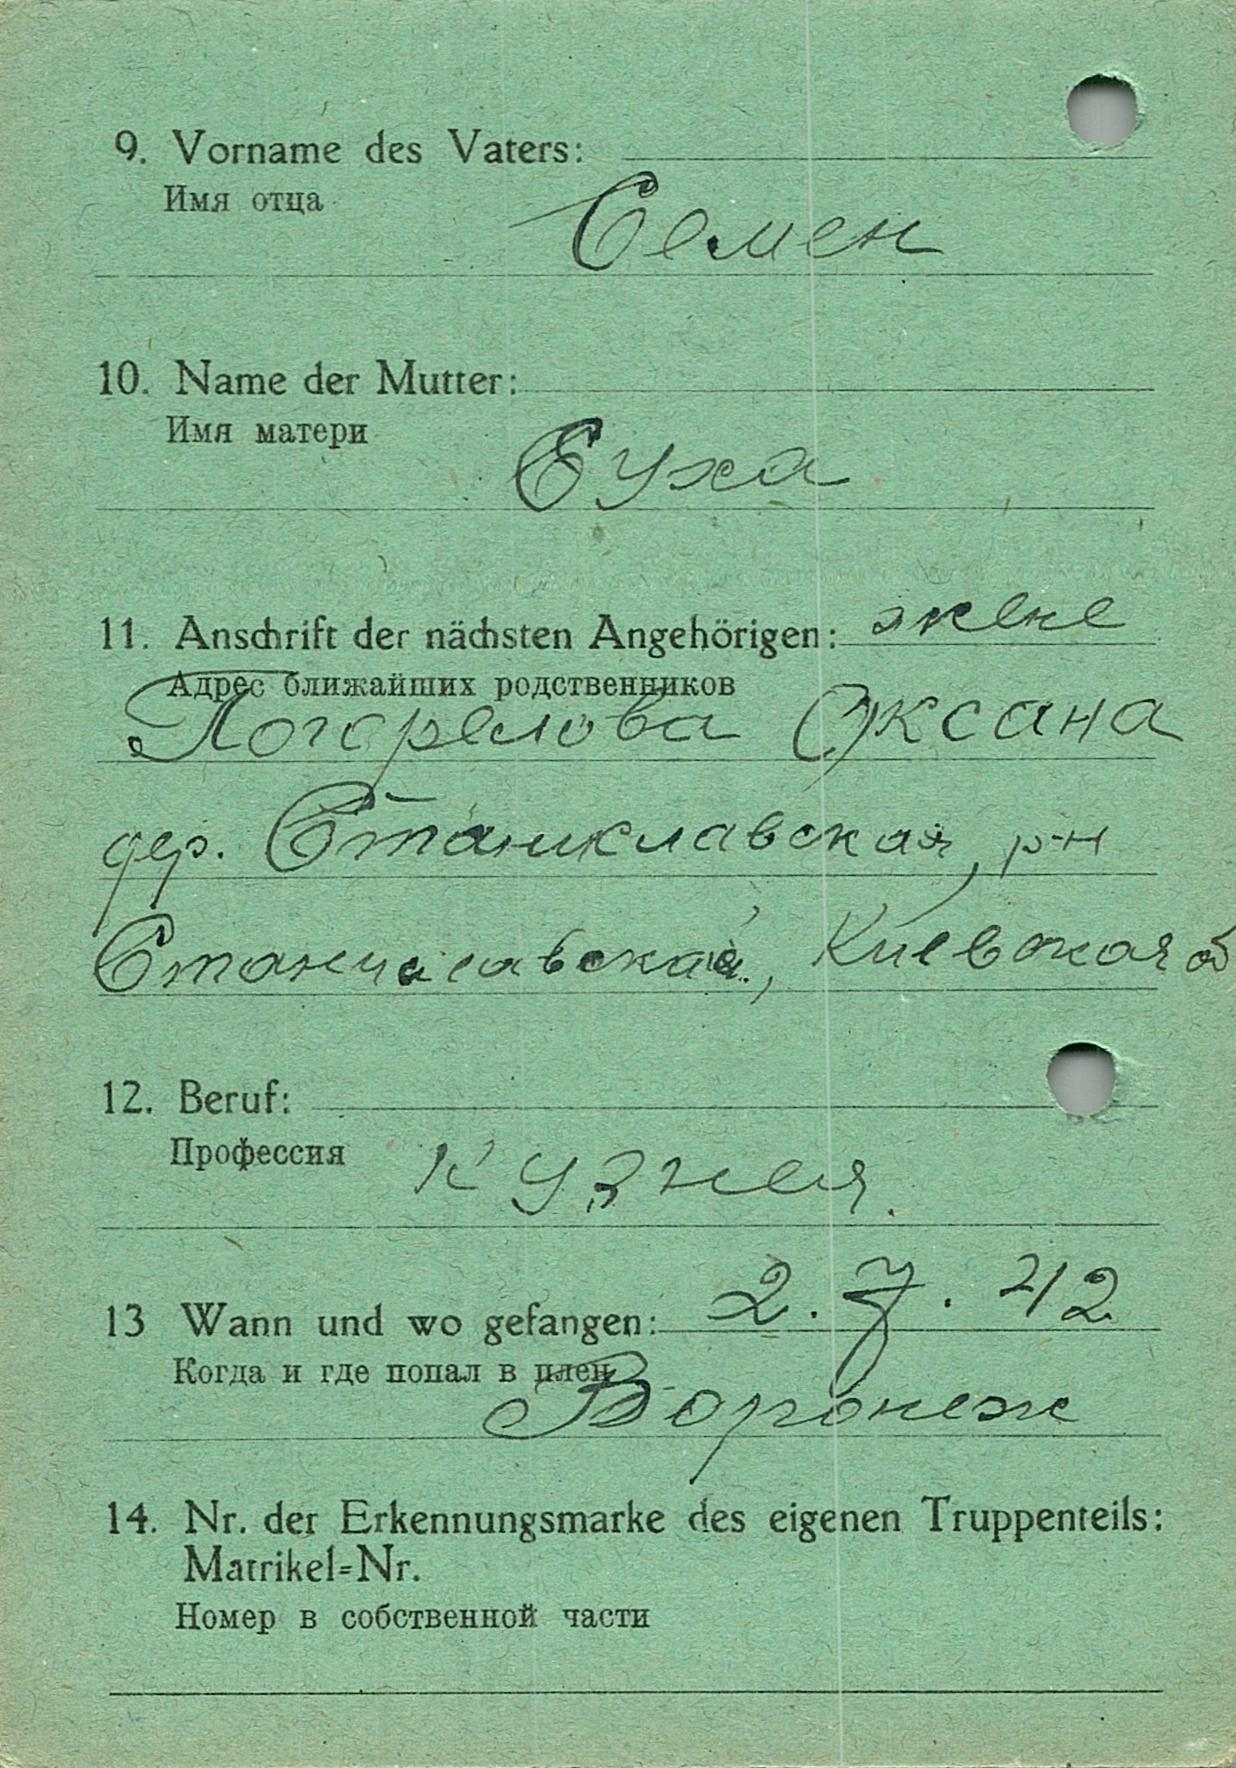 9. Vorname des Vaters:
Имя отца
Семен
10. Name der Mutter:
Имя матери
Еуха
11. Anschrift der nächsten Angehörigen: жене
Адрес ближайших родственников
Погорелова Оксана
дер. Станиславская, р-н
Станиславская, Киевская об
12. Beruf:
Профессия
Кузнец.
13 Wann und wo gefangen: 2. 7. 42
Когда и где попал в плен
Воронеж
14. Nr. der Erkennungsmarke des eigenen Truppenteils:
Matrikel=Nr.
Номер в собственной части